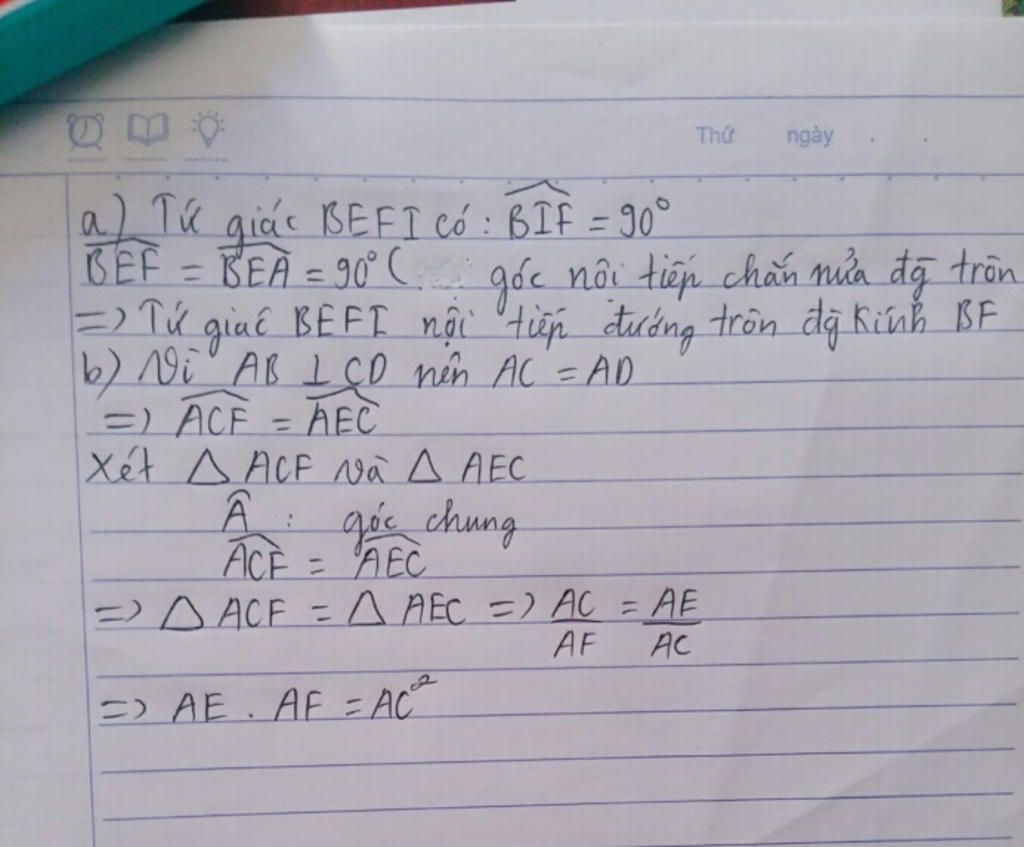 Thứ ngày . .
a) Tứ giác BEFI có : \widehat{BIF} = 90°
\widehat{BEF} = \widehat{BEA} = 90° ( góc nội tiếp chắn nửa đg tròn
=> Tứ giác BEFI nội tiếp đường tròn đg Kính BF
b) Vì AB ⊥ CD nên AC = AD
=> \widehat{ACF} = \widehat{AEC}
Xét △ ACF và △ AEC
\widehat{A} : góc chung
\widehat{ACF} = \widehat{AEC}
=> △ ACF = △ AEC => \frac{AC}{AF} = \frac{AE}{AC}
=> AE . AF = AC²